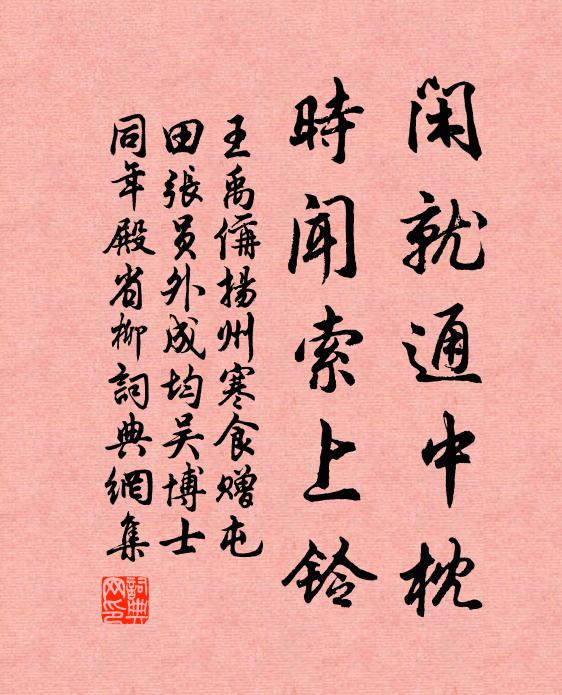 閑就通中枕
時聞索上鈴
王禹偁揚州寒食贈屯
田張員外成均吴博士
同年殿省柳詞典網集
詞典網印